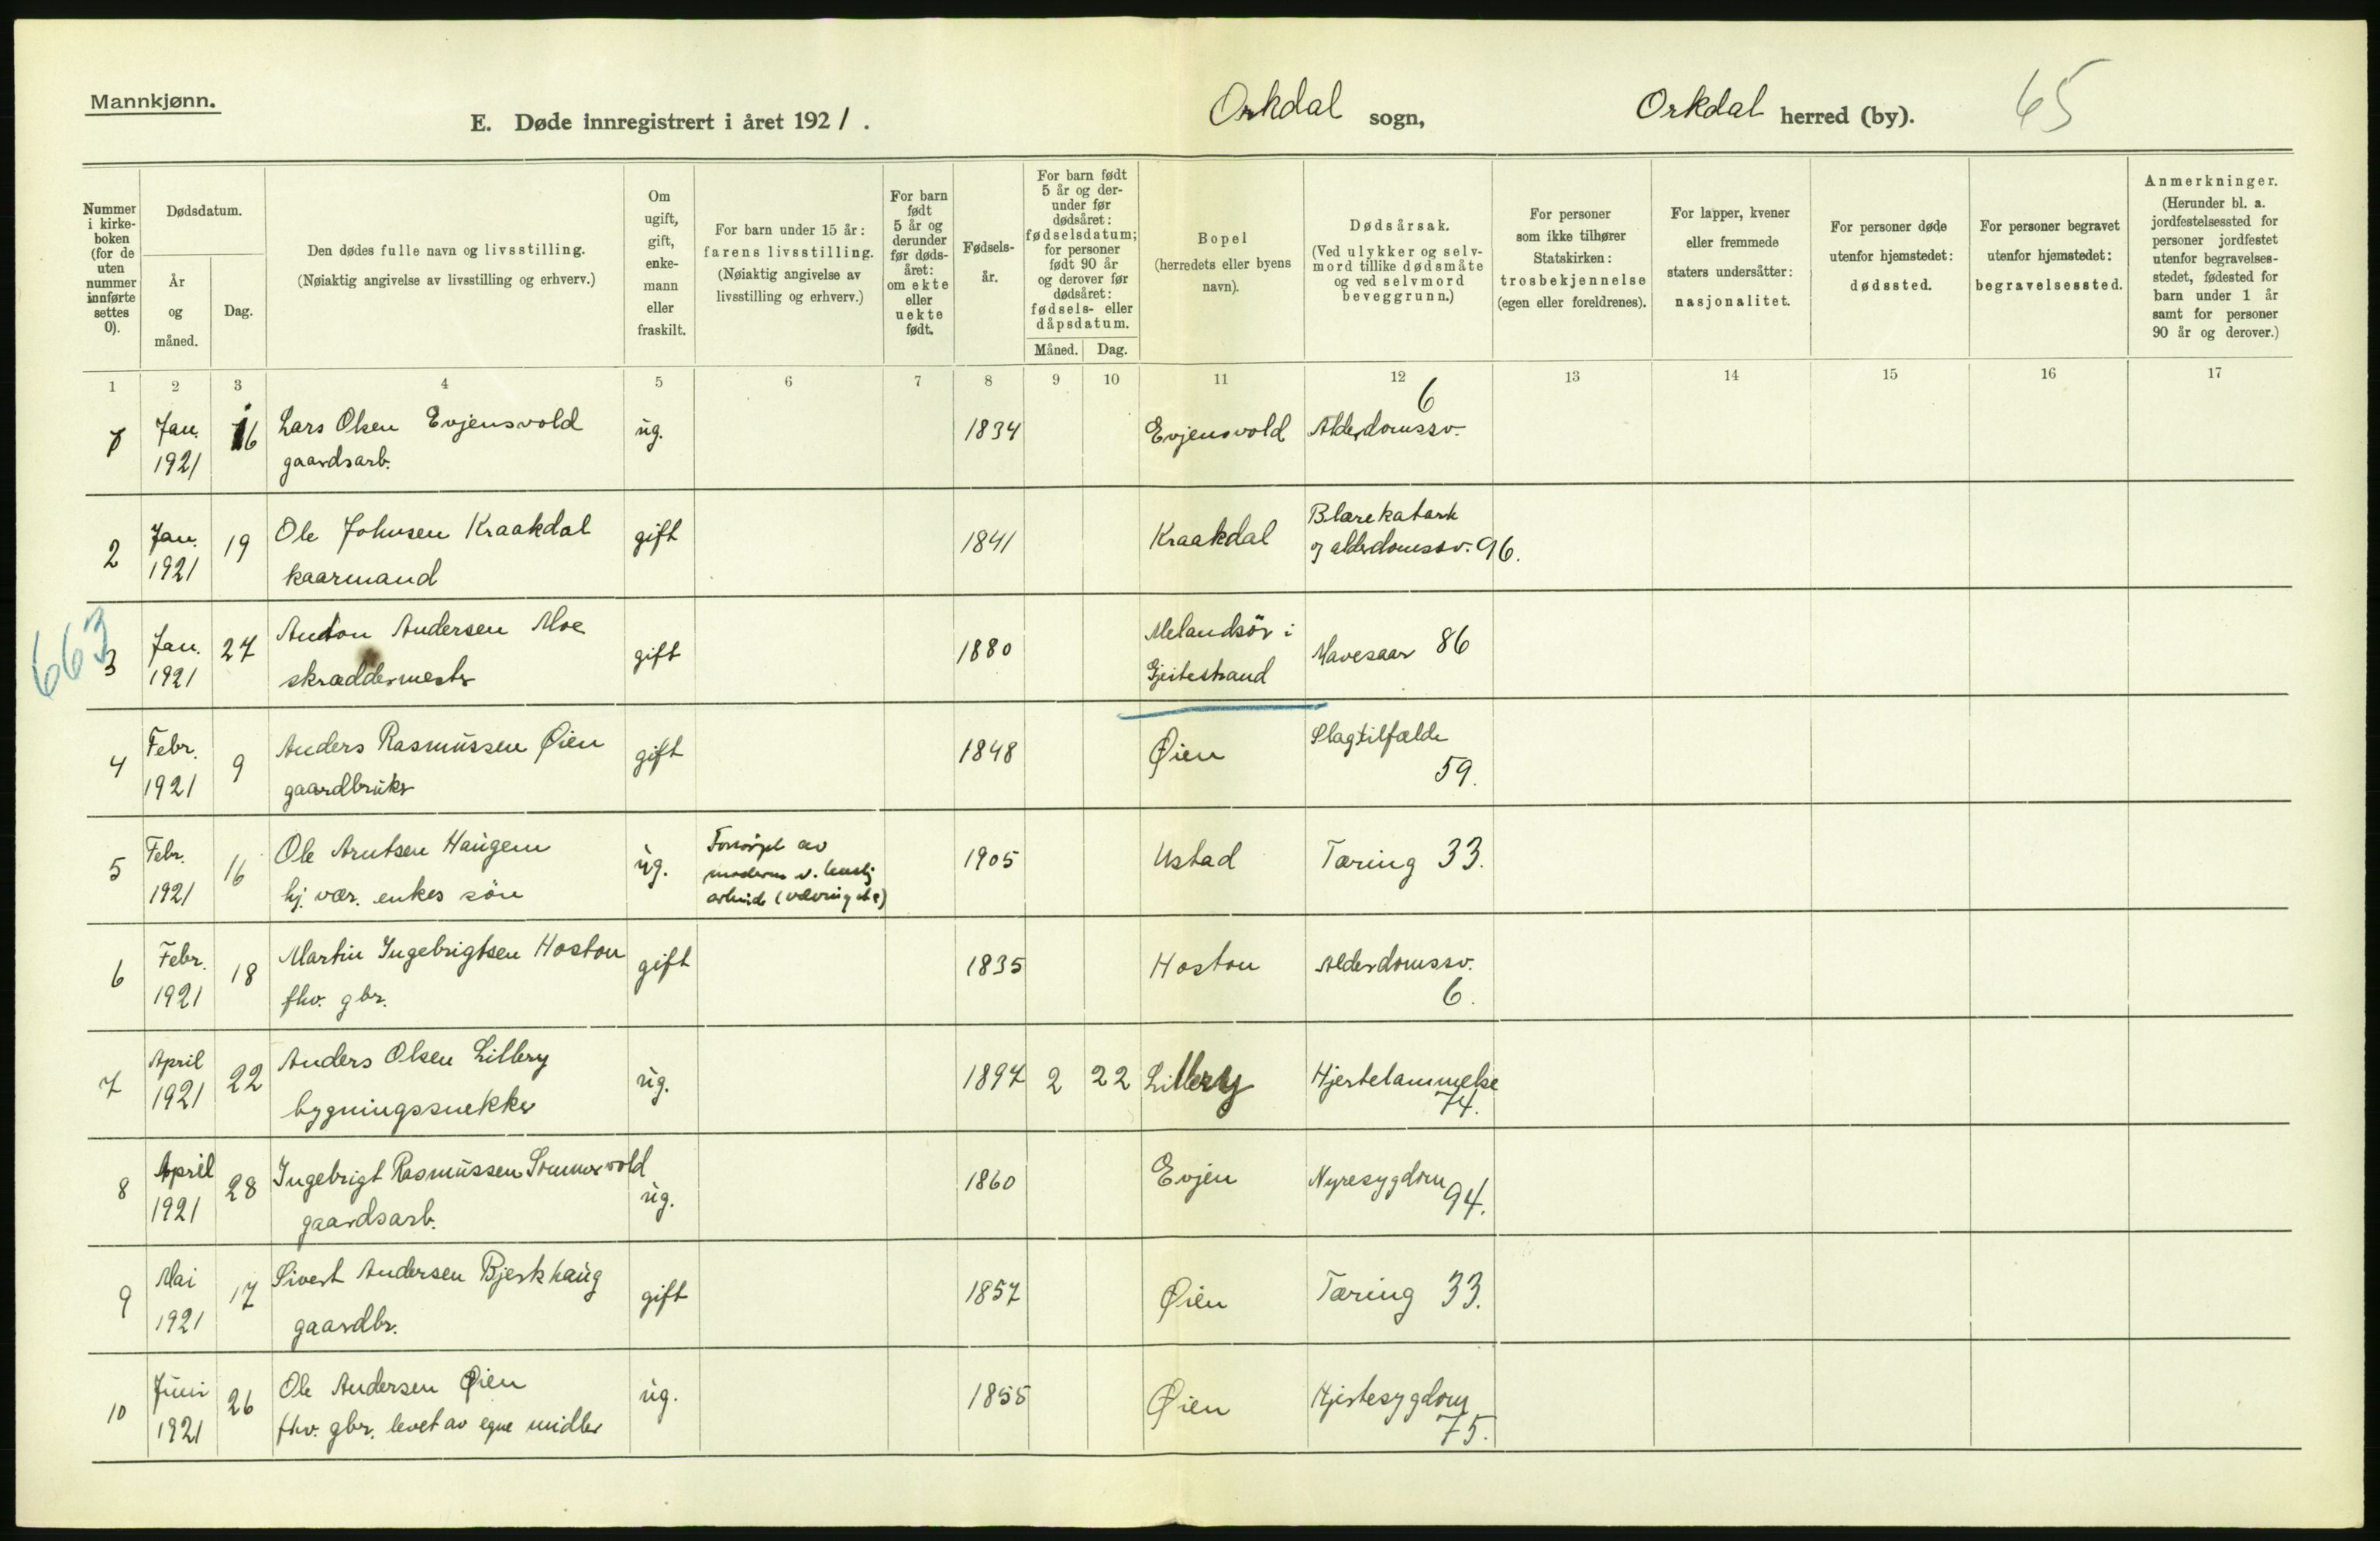 Mannkjønn.
E. Døde innregistrert i året 1921.
Orkdal sogn,
Orkdal herred (by).
65
Nummer i kirke-boken (for de uten nummer innførte settes 0).
Dødsdatum.
År og måned.
Dag.
Den dødes fulle navn og livsstilling.
(Nøiaktig angivelse av livsstilling og erhverv.)
Om ugift, gift, enke-mann eller fraskilt.
For barn under 15 år: farens livsstilling.
(Nøiaktig angivelse av livsstilling og erhverv.)
For barn født 5 år og derunder før døds-året: om ekte eller uekte født.
Fødsels-år.
For barn født 5 år og der-under før dødsåret: fødselsdatum; for personer født 90 år og derover før dødsåret: fødsels- eller dåpsdatum.
Måned. Dag.
Bopel
(herredets eller byens navn).
Dødsårsak.
(Ved ulykker og selv-mord tillike dødsmåte og ved selvmord beveggrunn.)
For personer som ikke tilhører Statskirken: trosbekjennelse
(egen eller foreldrenes).
For lapper, kvener eller fremmede staters undersåtter: nasjonalitet.
For personer døde utenfor hjemstedet: dødssted.
For personer begravet utenfor hjemstedet: begravelsessted.
Anmerkninger.
(Herunder bl. a. jordfestelsessted for personer jordfestet utenfor begravelses-stedet, fødested for barn under 1 år samt for personer 90 år og derover.)
1 2 3 4 5 6 7 8 9 10 11 12 13 14 15 16 17
1 Jan. 1921 16 Lars Olsen Evjensvold ug. 1834 Evjensvold Alderdomssv. 6
gaardsarb.
2 Jan. 1921 19 Ole Johnsen Kraakdal gift 1841 Kraakdal Blærekatarh
kaarmand og alderdomssv. 96.
663
3 Jan. 1921 27 Anton Andersen Moe gift 1880 Melandsör i Mavesaar 86
skræddermester Gjeitestrand
4 Febr. 1921 9 Anders Rasmussen Øien gift 1848 Øien Slagtilfælde
gaardbruker 59.
5 Febr. 1921 16 Ole Arntsen Haugem ug. Forsörget av 1905 Ustad Tæring 33.
hj. vær. enkes sön moderen v. huslig
arbeide (vævning etc)
6 Febr. 1921 18 Martin Ingebrigtsen Hoston gift 1835 Hoston Alderdomssv.
fhv. gbr. 6.
7 April 1921 22 Anders Olsen Lillery ug. 1897 2 22 Lillery Hjertelammelse
bygningssnekker 74.
8 April 1921 28 Ingebrigt Rasmussen Sommervold ug. 1860 Evjen Nyresygdom
gaardsarb. 94.
9 Mai 1921 17 Sivert Andersen Bjerkhaug gift 1857 Øien Tæring 33.
gaardbr.
10 Juni 1921 26 Ole Andersen Øien ug. 1855 Øien Hjertesygdom
fhv. gbr. levet av egne midler 75.